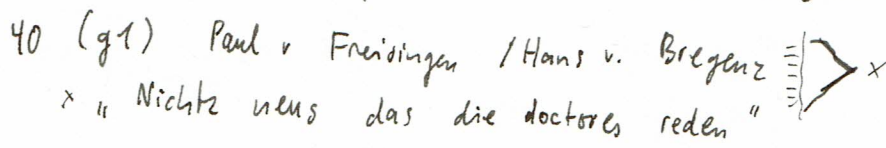 40 (g1) Paul v Freisingen / Hans v. Bregenz x
x "Nichtz neus das die doctores reden"